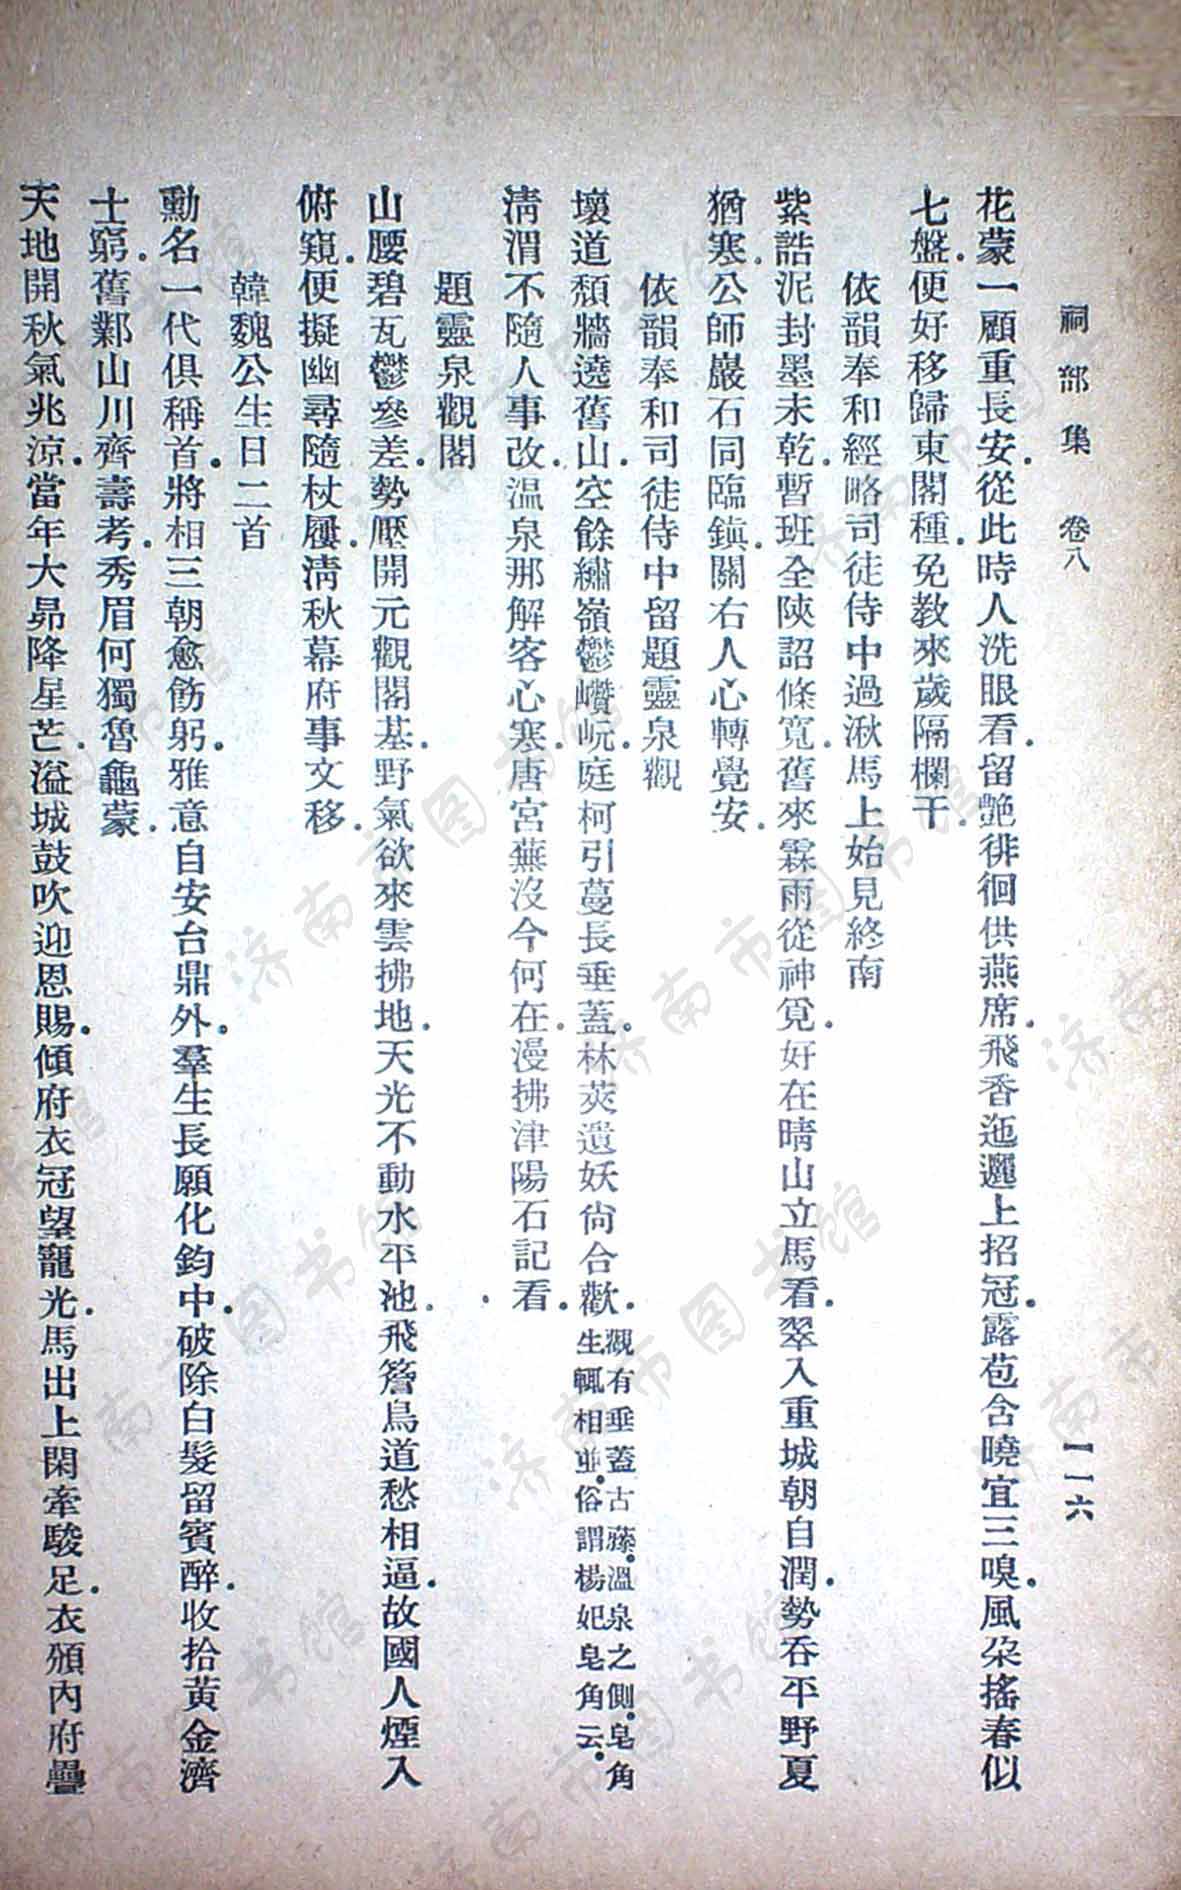 祠部集　卷八　一一六
花蒙一顧重長安.從此時人洗眼看.留艷徘徊供燕席.飛香迤邐上招冠.露苞含曉宜三嗅.風朶搖春似
七盤.便好移歸東閣種.免教來歲隔欄干.
依韻奉和經略司徒侍中過湫馬上始見終南
紫誥泥封墨未乾.暫班全陝詔條寬.舊來霖雨從神覓.好在晴山立馬看.翠入重城朝自潤.勢吞平野夏
猶寒.公師巖石同臨鎮.關右人心轉覺安.
依韻奉和司徒侍中留題靈泉觀
壞道頹牆遶舊山.空餘繡嶺鬱巑岏.庭柯引蔓長垂蓋.林莢遺妖尙合歡.觀有垂蓋古藤.溫泉之側.皂角生輒相並.俗謂楊妃皂角云.
淸渭不隨人事改.溫泉那解客心寒.唐宮蕪沒今何在.漫拂津陽石記看.
題靈泉觀閣
山腰碧瓦鬱參差.勢壓開元觀閣基.野氣欲來雲拂地.天光不動水平池.飛簷鳥道愁相逼.故國人煙入
俯窺.便擬幽尋隨杖屨.淸秋幕府事文移.
韓魏公生日二首
勳名一代俱稱首.將相三朝愈飭躬.雅意自安台鼎外.羣生長願化鈞中.破除白髮留賓醉.收拾黃金濟
士窮.舊鄴山川齊壽考.秀眉何獨魯龜蒙.
天地開秋氣兆涼.當年大昴降星芒.溢城鼓吹迎恩賜.傾府衣冠望寵光.馬出上閑牽駿足.衣頒內府疊
济南市图书馆